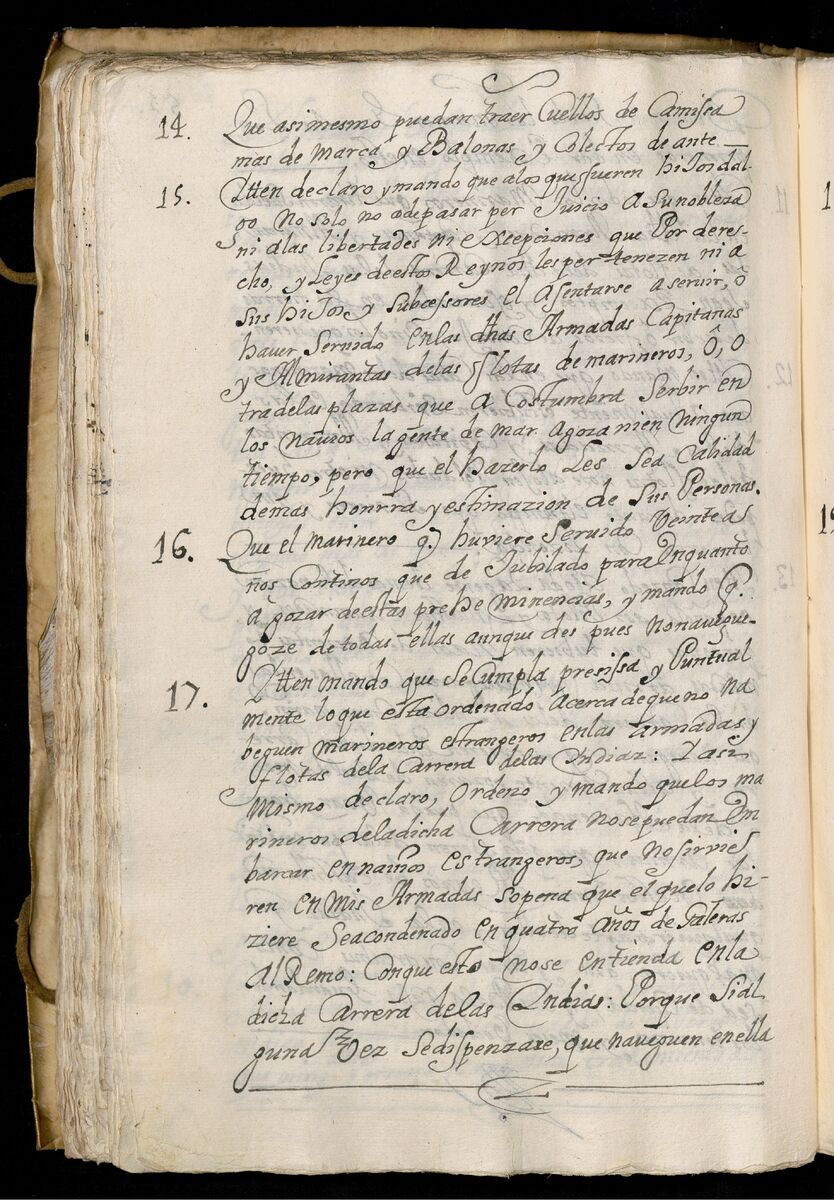 14. Que asimesmo puedan traer Cuellos de Camisea
mas de marca y Balonas y Colectos de ante
15. Ytten declaro y mando que alos que fueren hiJos dal
go no solo no a depasar per Juicio a Su nobleza
ni alas libertades ni excepciones que Por deres-
cho, y Leyes deestos Reynos les per tenezen ni a
sus hiJos y subcessores el asentarse a servir, ô
haver Servido enlas dhas Armadas Capitanas
y Almirantas delas flotas de marineros, ô, o
tra delas plazas que a Costumbra Serbir en
los navios la gente de mar agora nien ningun
tiempo, pero que el hazerlo Les sea Calidad
demas honrra y estimazion de sus Personas.
16. Que el marinero q.) huviere Servido Veinte a
ños Continos que de Jubilado para Enquanto
a gozar de estas prehe minencias, y mando q.
goze de todas ellas aunque des pues no navegue-
17. Ytten mando que se Cumpla presissa y Puntual
mente loque esta ordenado acerca deque no na
beguen marineros estrangeros enlas armadas y
flotas dela Carrera delas Yndias: Y asi
mismo declaro, ordeno y mando quelos ma
rineros deladicha Carrera nosepuedan Em
barcar en navios estrangeros, que no sirvie
ren en mis Armadas sopena que el quelo hi-
ziere Sea condenado en quatro años de Galeras
al Remo: Conque esto nose entienda enla
dicha Carrera delas Yndias: Porque si al
guna Vez sedispenzare, que naveguen en ella